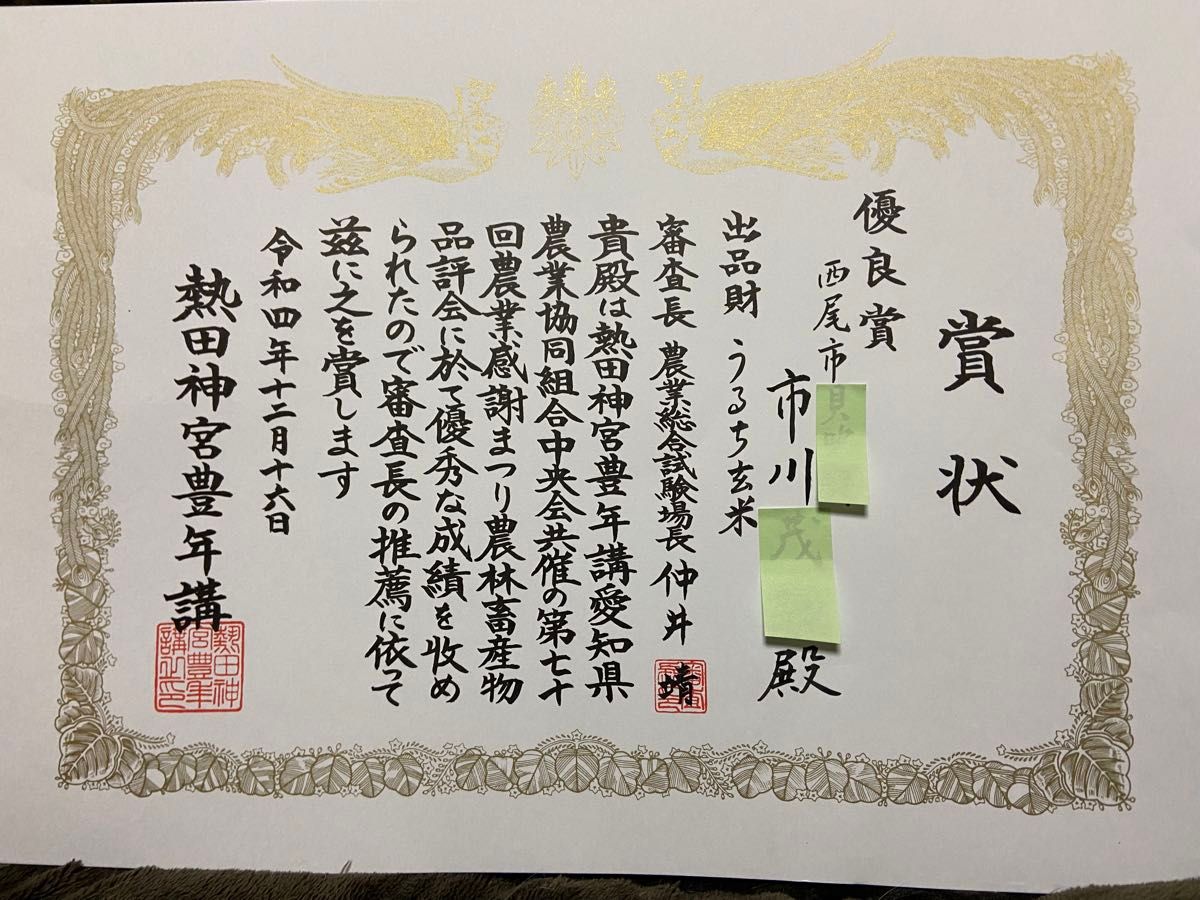 賞状
優良賞
西尾市
市川 殿
出品財 うるち玄米
審査長 農業総合試験場長 仲井 靖
貴殿は熱田神宮豊年講愛知県
農業協同組合中央会共催の第七十
回農業感謝まつり農林畜産物
品評会に於て優秀な成績を収め
られたので審査長の推薦に依って
茲に之を賞します
令和四年十二月十六日
熱田神宮豊年講
熱田神
宮豊年
講之印